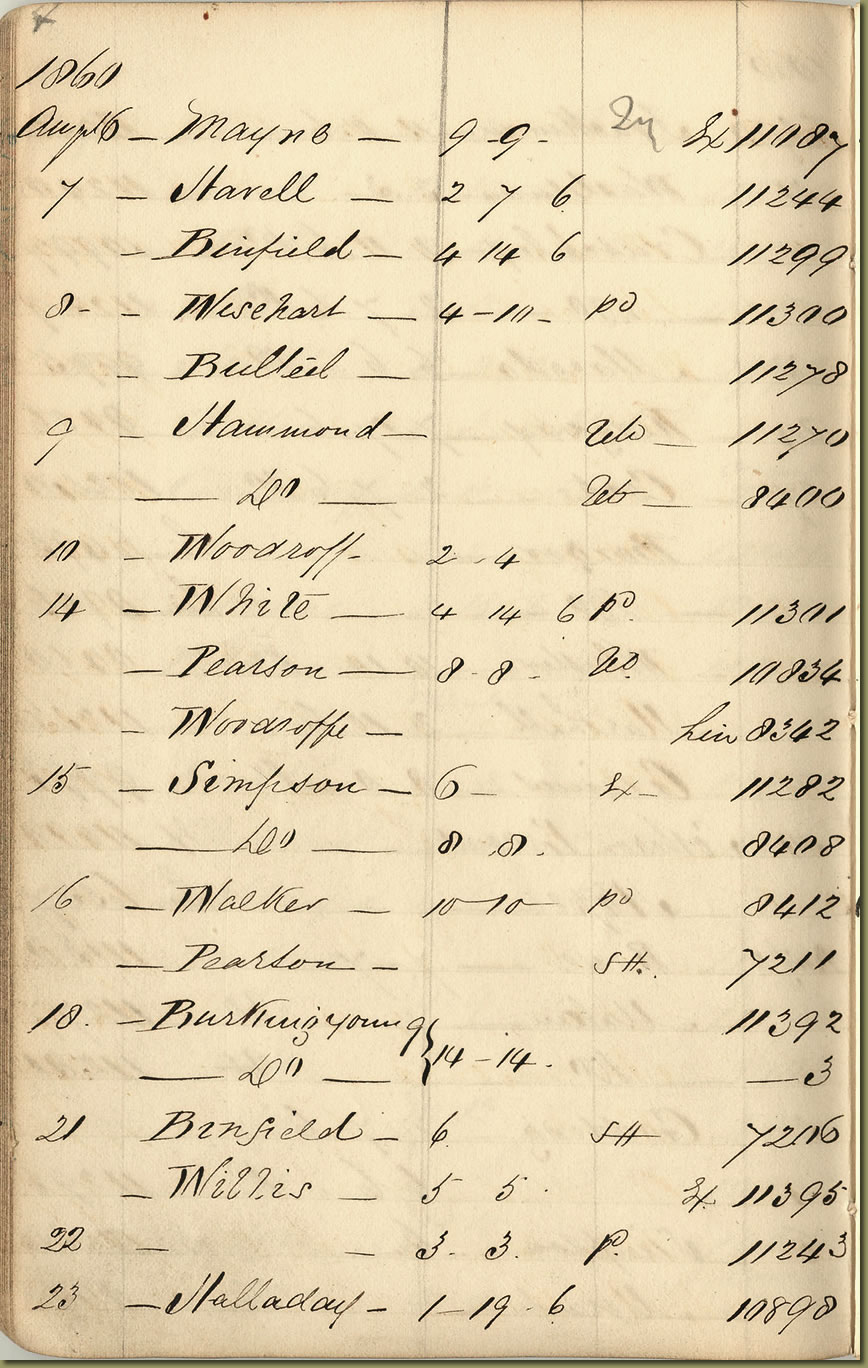 1860
Augst 6 — Mayne — 9 - 9 - Ex 11087
7 — Havell — 2 7 6 11244
— Binfield — 4 14 6 11299
8 - - Wisehart — 4 - 10 - po 11300
- Bulteel — 11278
9 - Hammond — 11270
— Do — 8400
10 - Woodroff - 2 . 4
14 — White — 4 14 6 po 11301
— Pearson — 8 - 8 - 10834
- Woodroffe — Lin 8342
15 - Simpson — 6 - Ex - 11282
— Do — 8 . 8 . 8408
16 — Walker — 10 - 10 — po 8412
— Pearson - SH. 7211
18. — Burkingyoung 11392
— Do — } 14 - 14 . — 3
21 Binfield - 6 SH 7206
— Willis — 5 5 . Ex 11395
22 — — 3. 3. p. 11243
23 — Halladay - 1 — 19 - 6 10898